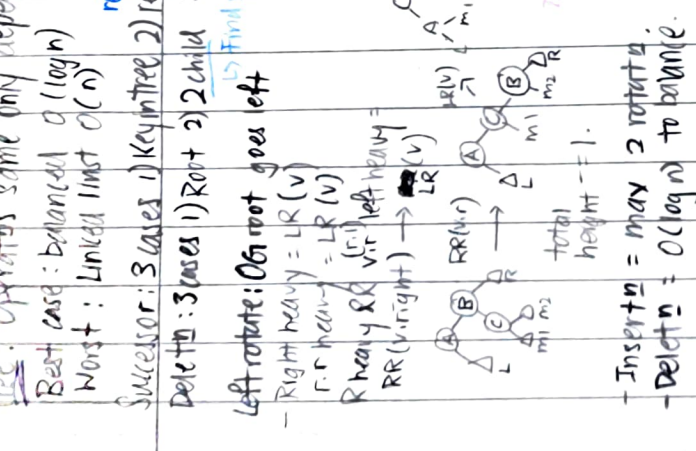 operates same only depe
Best case : balanced O(log n)
Worst : Linked linst O(n)
Successor : 3 cases 1) Key in tree 2)
Delet n : 3 cases 1) Root 2) 2 child
↳ Find
Left rotate : OG root goes left
- Right heavy = LR (v)
r.r heavy = LR (v)
R heavy & v.r (r.l) left heavy =
RR (v.right) → LR (v)
A B C L R m1 m2
RR(v.r) →
A C B L m1 m2 R
LR(v)
A L m1
total height -= 1.
- Insert n = max 2 rotat n
- Delet n = O(log n) to balance.